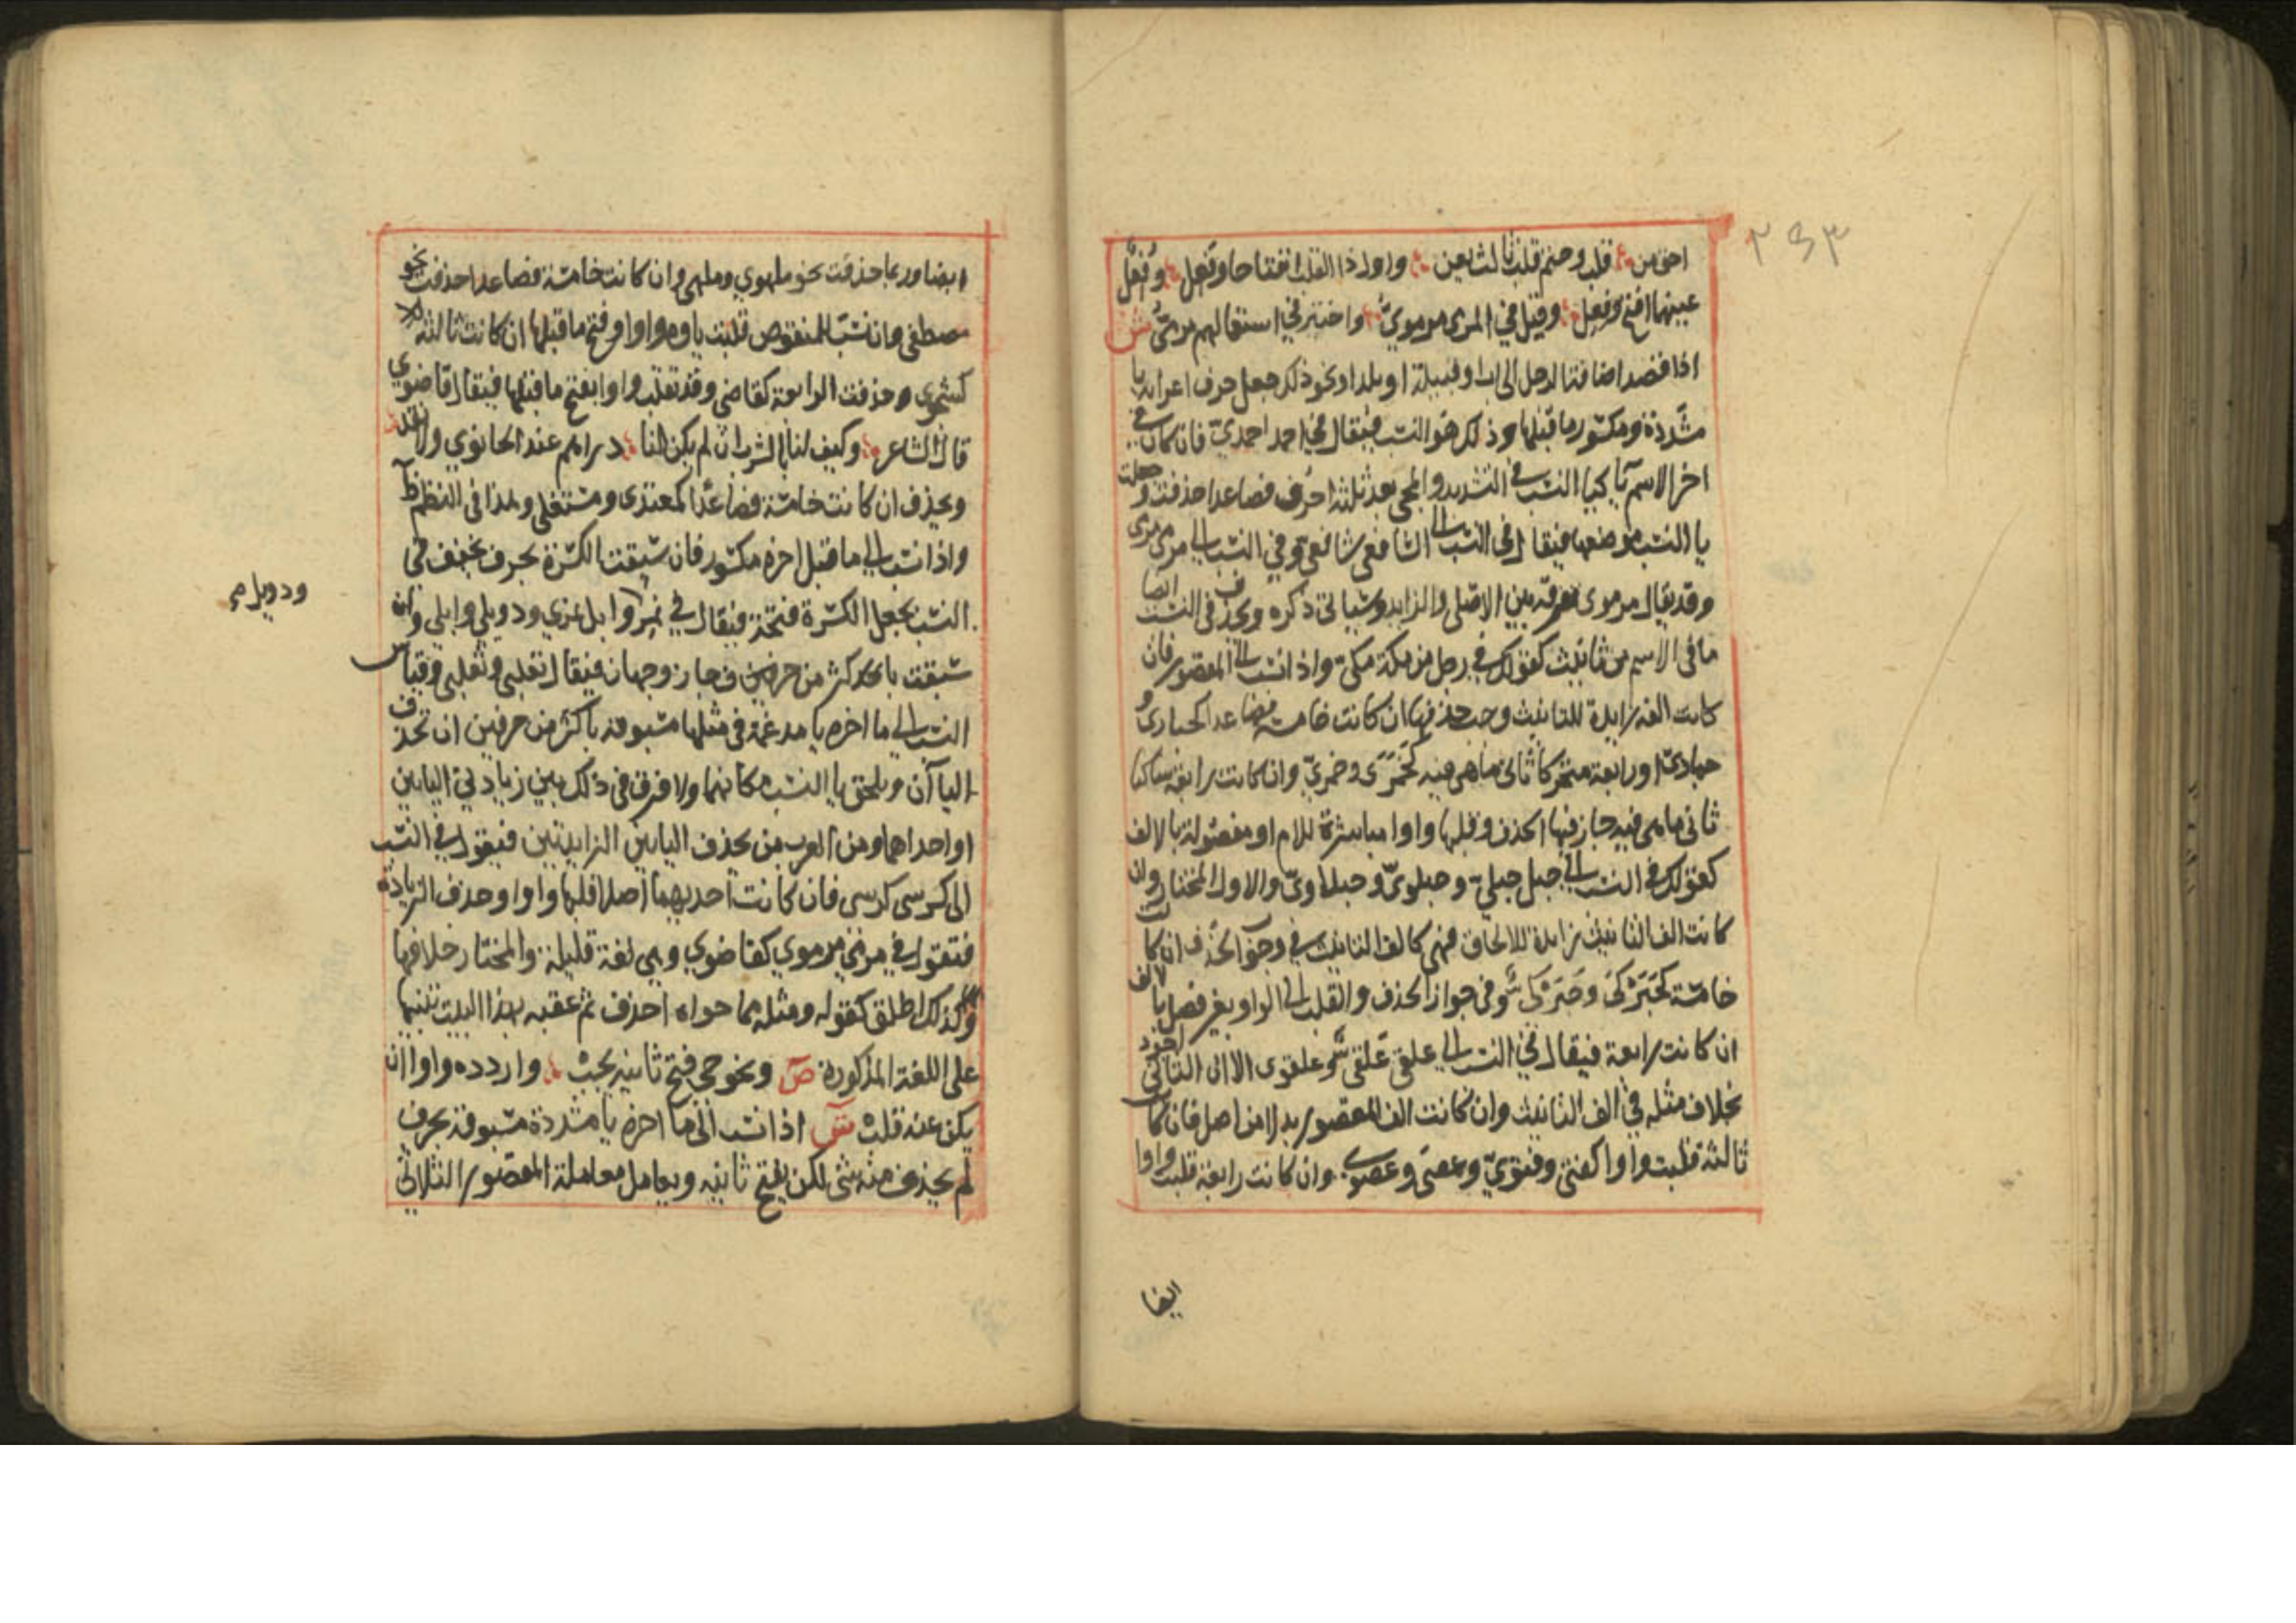 ٢٩٣
احق من قلب وحتم قلب ثالث يعن واول ذا القلب انفتاحا وفعل وفعل
عينهما افتح وفعل وقيل في المرمى مرموي واختير في استعمالهم مرمى ش
اذا قصد اضافة الرجل الى اب او قبيلة او بلد او نحو ذلك جعل حرف اعرابه يا
مشددة ومكسور ما قبلها وذلك هو النسب فيقال في احمد احمدي فان كان في
اخر الاسم يا كيا النسب في التشديد والمجي بعد ثلثة احرف فصاعدا حذفت وجعلت
يا النسب موضعها فيقال في النسب الى الشافعي شافعي وفي النسب الى مرمى مرمى
وقد يقال مرموى تفرقة بين الاصلى والزايد وسياتي ذكره ويحذف في النسب ايضا
ما في الاسم من تانيث كقولك في رجل من مكة مكي واذا نسب الى المقصور فان
كانت الفه زايدة للتانيث وجب حذفها ان كانت خامسة فصاعدا كحبارى و
حبارى او رابعة متحركا ثاني ما هي فيه كجمزى وجمزي وان كانت رابعة ساكنا
ثاني ما هي فيه جاز فيها الحذف وقلبها واوا مباشرة للام او مفصولة بالالف
كقولك في النسب الى حبلى حبلي وحبلوي وحبلاوي والاول المختار وان
كانت الف التانيث زايدة للالحاق فهي كالف التانيث في وجوب الحذف ان كانت
خامسة كحبركى وحبركي وفي جواز الحذف والقلب الى الواو بغير فصل بالالف
ان كانت رابعة فيقال في النسب الى علقى علقي وعلقوى الا ان الثاني اجود
بخلاف مثله في الف التانيث وان كانت الف المقصور بدلا من اصل فان كانت
ثالثة قلبت واوا كفتى وفتوي وعصى وعصوي وان كانت رابعة قلبت واوا
ايضا
ايضا وربما حذفت نحو ملهوي وملهى وان كانت خامسة فصاعدا حذفت نحو
مصطفى وان نسب للمنقوص قلبت ياوه واوا وفتح ما قبلها ان كانت ثالثة
كشجوى وحذفت الرابعة كقاضي وقد تقلب واوا بفتح ما قبلها فيقال قاضوي
قال الشاعر وكيف لنا بالشرب ان لم يكن لنا دراهم عند الحانوي ولا نقد
ويحذف ان كانت خامسة فصاعدا كمعتدى ومستعلى وهذا في النظم
واذا نسب الى ما قبل اخره مكسور فان سبقت الكسرة بحرف خفف في
النسب بجعل الكسرة فتحة فيقال في نمر وابل نمري ودويلي وابلي وان
سبقت باكثر من حرف جاز وجهان فيقال تغلبي وتغلبي وقياس
النسب الى ما اخره يا مدغمة في مثلها مسبوقة باكثر من حرفين ان تحذف
الياآن ويلحق يا النسب مكانهما ولا فرق في ذلك بين زيادتي اليايين
او احداهما ومن العرب من يحذف اليايين الزايدتين فيقول في النسب
الى كرسى كرسى فان كانت احديهما اصلا قلبها واوا وحذف الزيادة
فتقول في مرمي مرموي كقاضوي وهي لغة قليلة والمختار خلافها
وكذلك اطلق كقوله ومثله مما حواه احذف ثم عقبه بهذا البيت تنبيها
على اللغة المذكورة ص ونحو حي فتح ثانيه يجب واردده واوا ان
يكن عنه قلب ش اذا نسب الى ما اخره يا مشددة مسبوقة بحرف
لم يحذف منه شى لكن يفتح ثانيه ويعامل معاملة المقصور الثلاثي